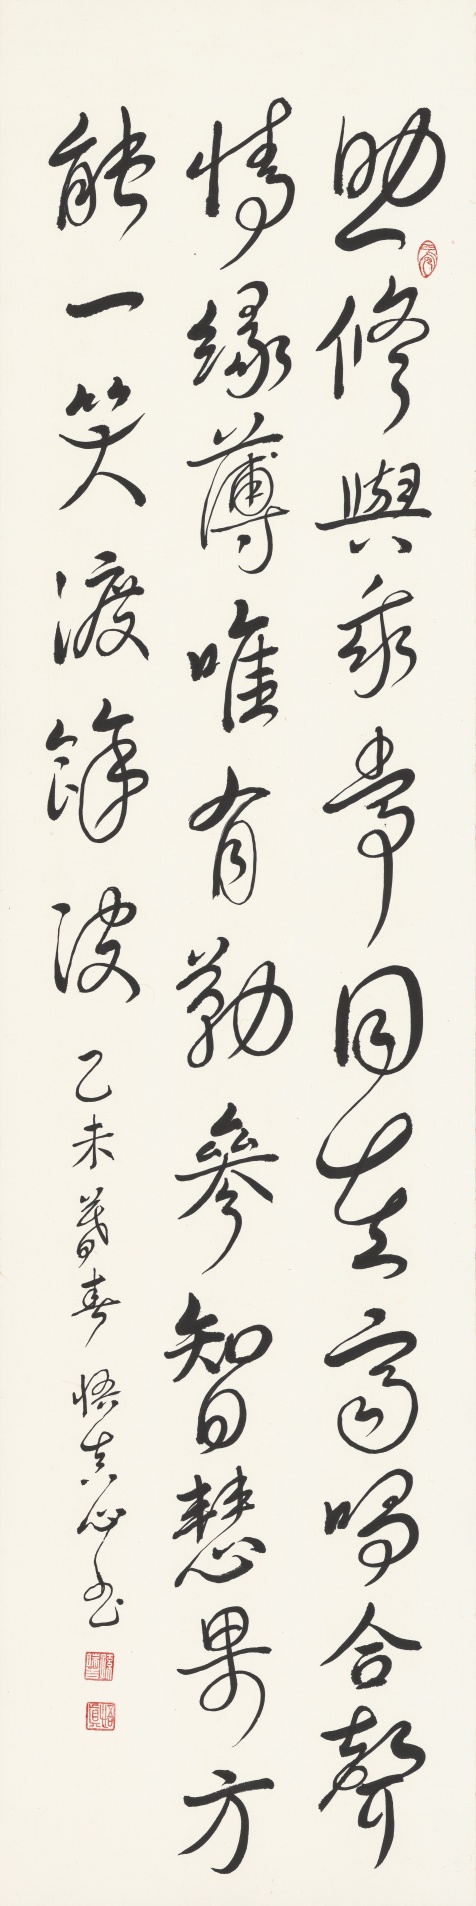 助修與常同在高唱合聲
情緣薄唯有勤參智慧果方
能一笑渡餘波
乙未暮春 悟真心書